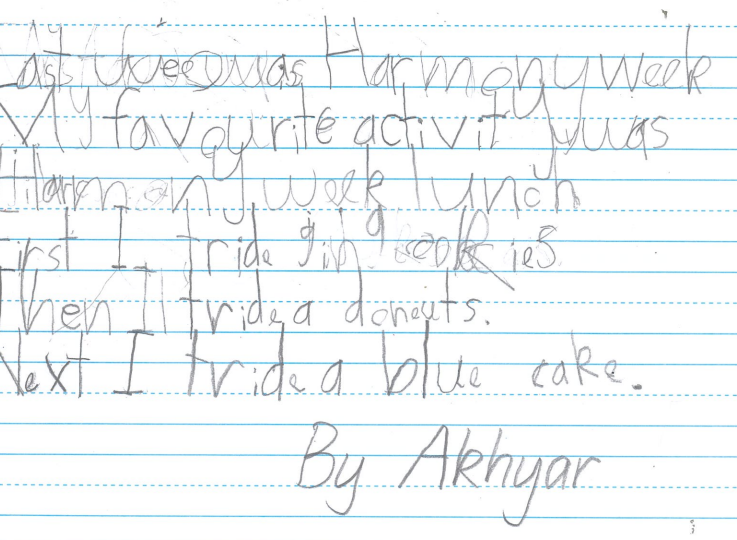 Last week was Harmony week
My favourite activity was
Harmony week lunch
First I tride ging cookies
Then I tride a doneuts.
Next I tride a blue cake.
By Akhyar